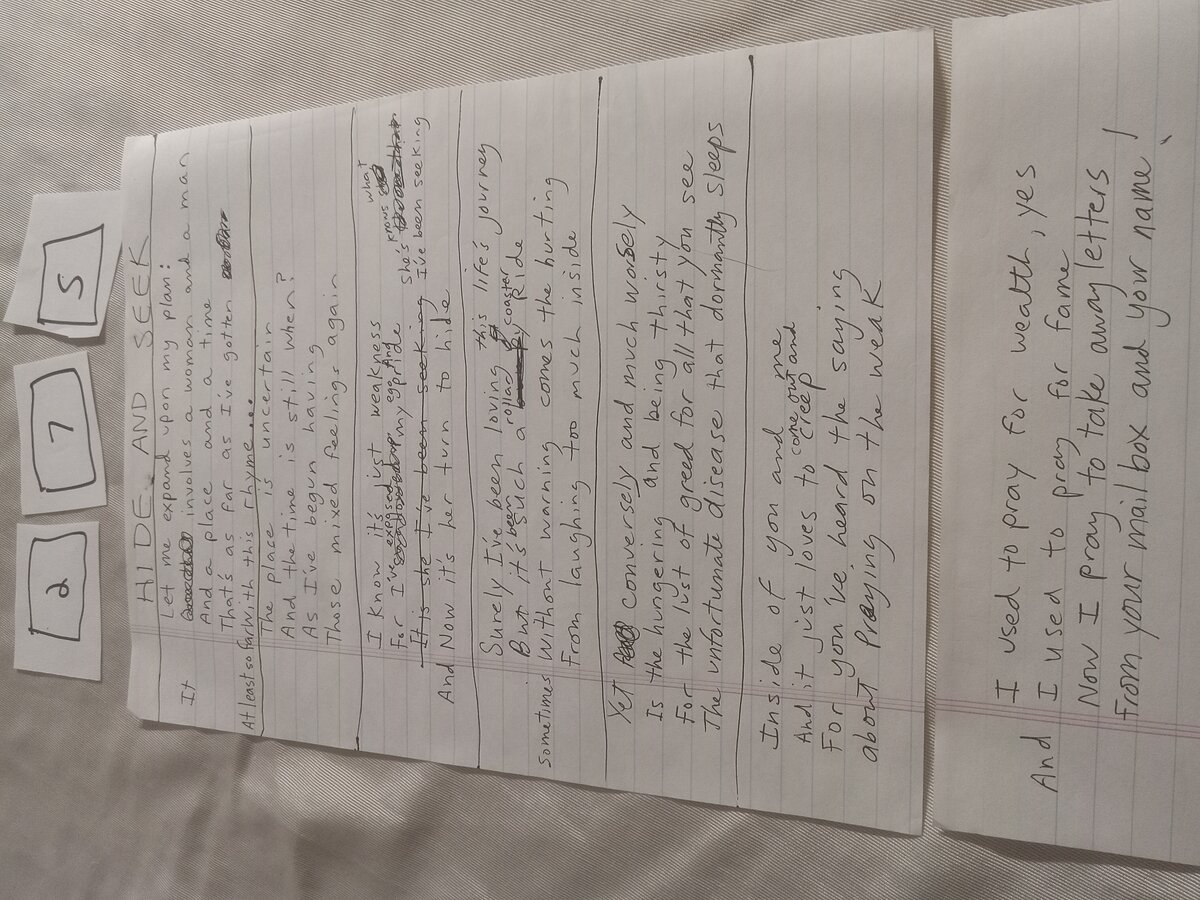 2 7 5
HIDE AND SEEK
Let me expand upon my plan:
It involves a woman and a man
And a place and a time
That's as far as I've gotten
At least so far with this rhyme...
The place is uncertain
And the time is still when?
As I've begun having
Those mixed feelings again
I know it's just weakness
For I've exposed my ego And pride
It is she I've been seeking She's knows what I've been seeking
And Now it's her turn to hide
Surely I've been loving this life's journey
But it's been such a rollar coaster Ride
sometimes Without warning comes the hurting
From laughing too much inside
Yet conversely and much worsely
Is the hungering and being thirsty
For the lust of greed for all that you see
The unfortunate disease that dormantly sleeps
Inside of you and me
And it just loves to come out and creep
For you've heard the saying
about Preying on the weak
I used to pray for wealth, yes
And I used to pray for fame
Now I pray to take away letters
From your mail box and your name!